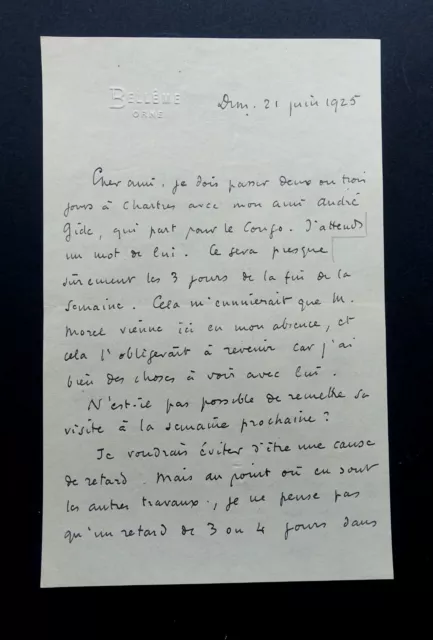 BELLÊME
ORNE
Dim. 21 juin 1925
Cher ami. Je dois passer deux ou trois
jours à Chartres avec mon ami André
Gide, qui part pour le Congo. J'attends
un mot de lui. Ce sera presque
sûrement les 3 jours de la fin de la
semaine. Cela m'ennuierait que M.
Morel vienne ici en mon absence, et
cela l'obligerait à revenir car j'ai
bien des choses à voir avec lui.
N'est-il pas possible de remettre sa
visite à la semaine prochaine ?
Je voudrais éviter d'être une cause
de retard. Mais au point où en sont
les autres travaux, je ne pense pas
qu'un retard de 3 ou 4 jours dans